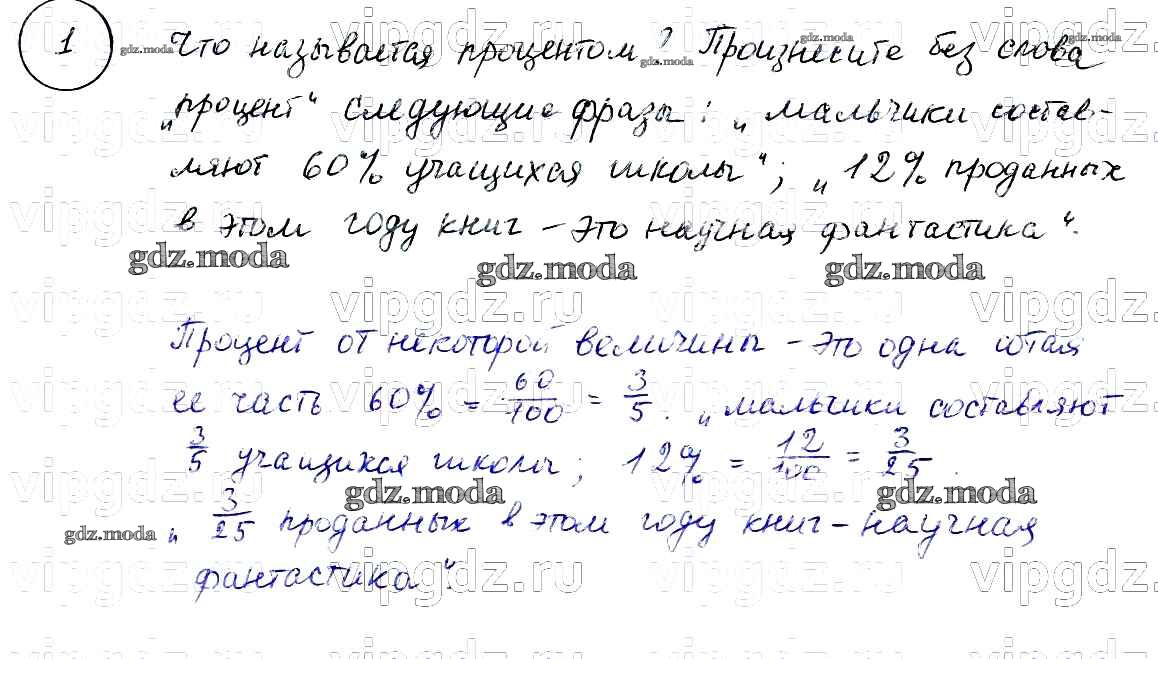 1 Что называется процентом? Произнесите без слова
„процент“ следующие фразы: „мальчики состав-
ляют 60% учащихся школы“; „12% проданных
в этом году книг – это научная фантастика“.
Процент от некоторой величины – это одна сотая
ее часть 60% = 60/100 = 3/5. „мальчики составляют
3/5 учащихся школы; 12% = 12/100 = 3/25.
„3/25 проданных в этом году книг – научная
фантастика“.
vipgdz.ru
gdz.moda